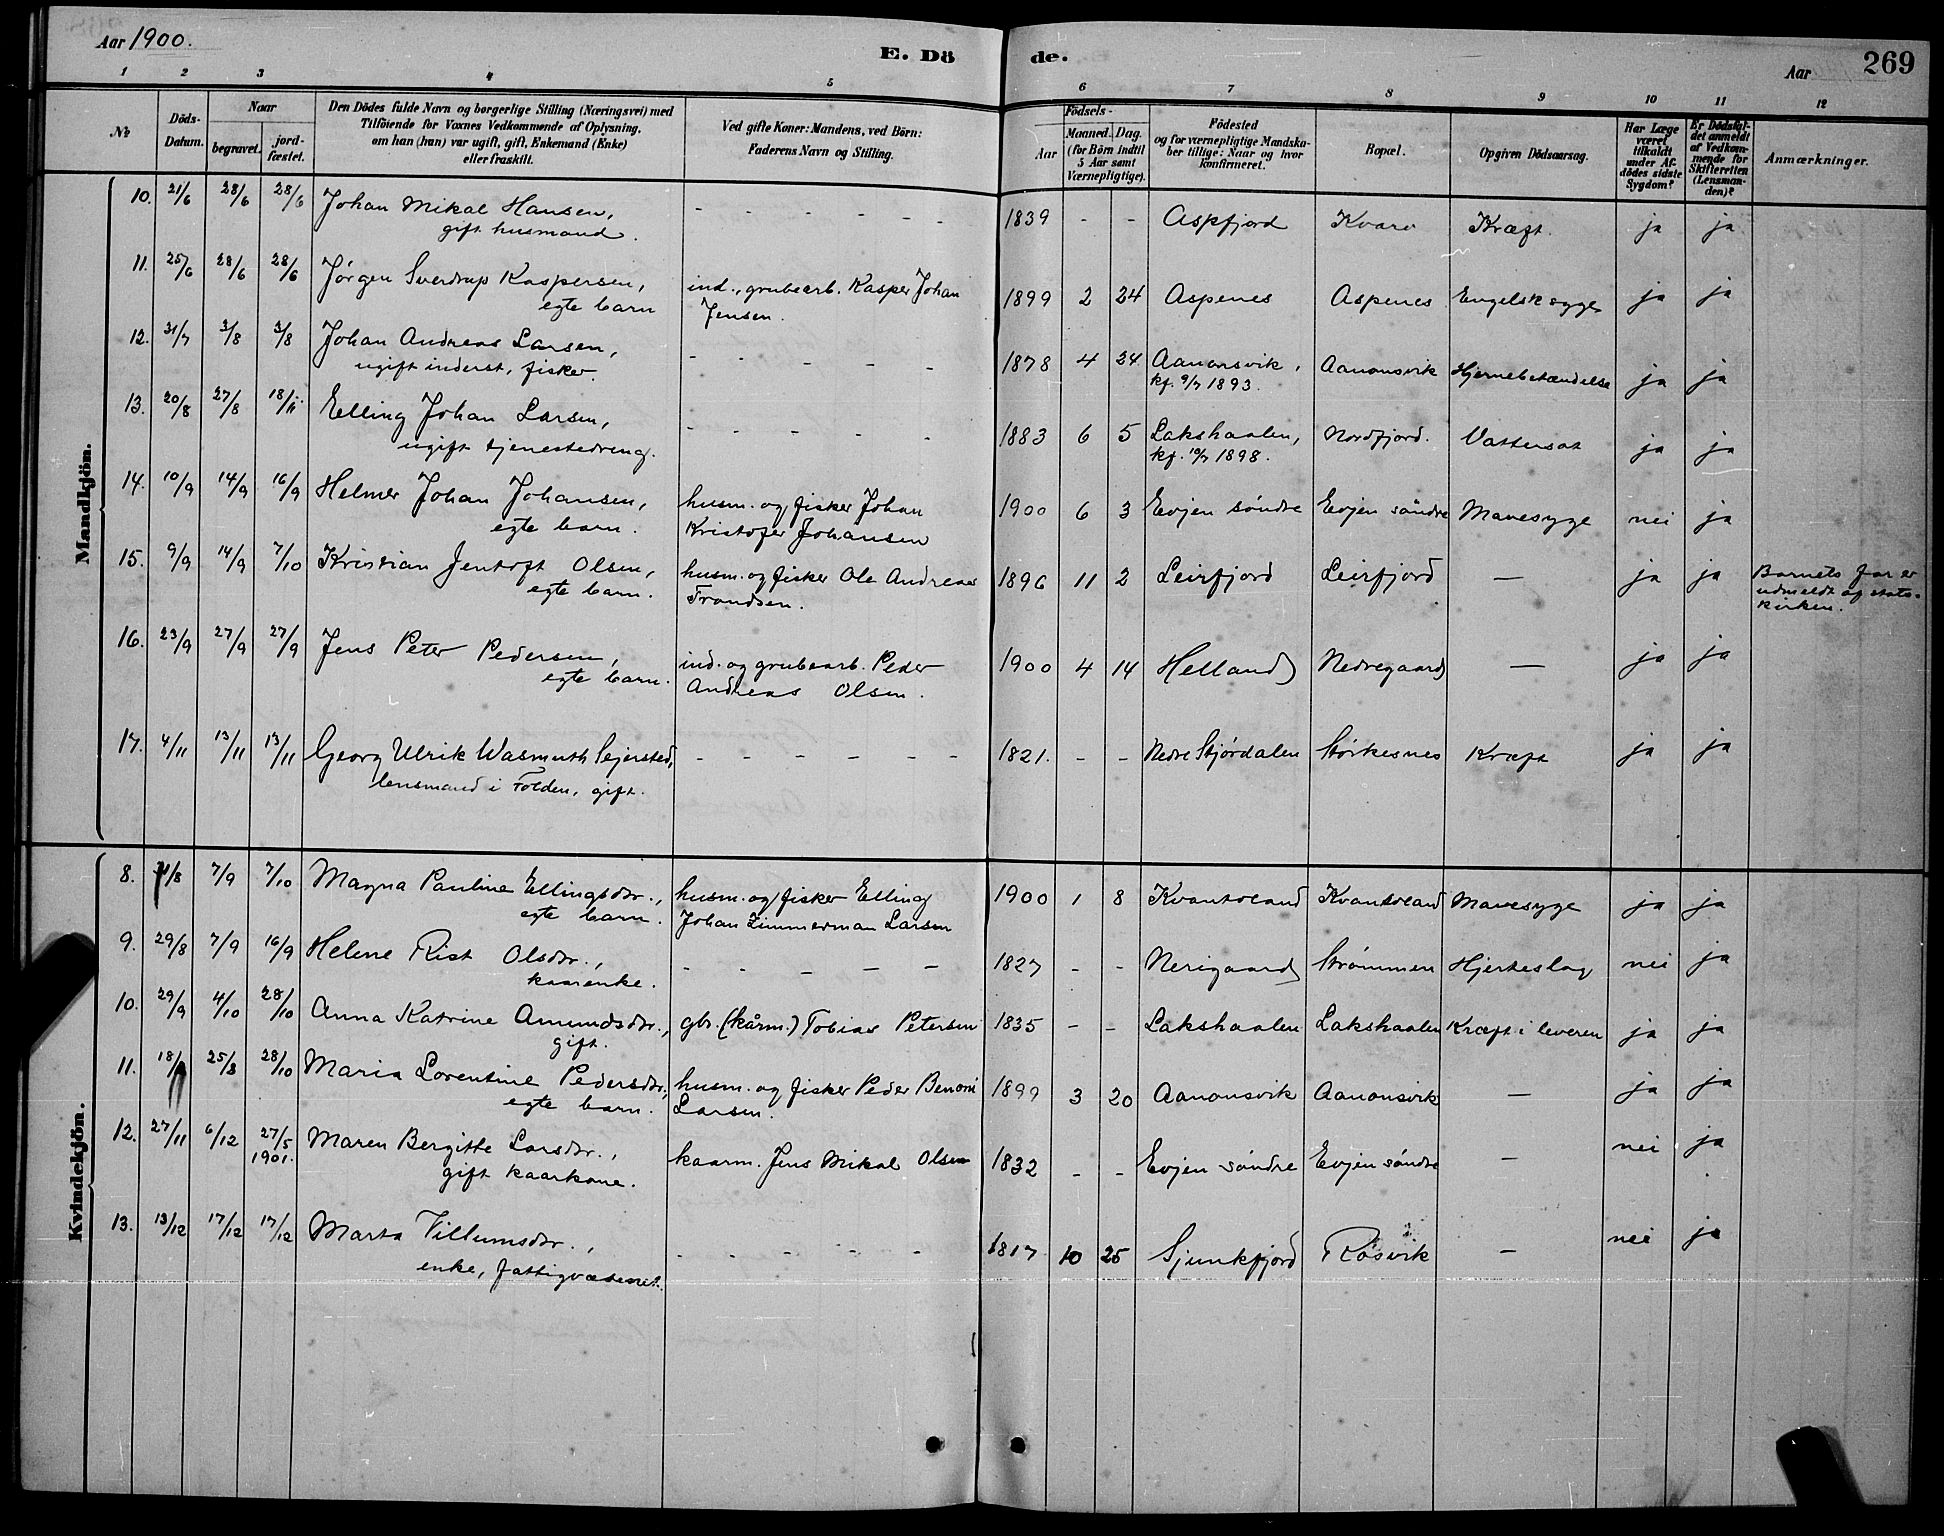 Aar 1900.
E. Dö
de.
Aar
269
1 2 3 4 5 6 7 8 9 10 11 12
№
Döds-Datum.
Naar
begravet.
jord-fæstet.
Den Dödes fulde Navn og borgerlige Stilling (Næringsvei) med
Tilföiende for Voxnes Vedkommende af Oplysning,
om han (hun) var ugift, gift, Enkemand (Enke)
eller fraskilt.
Ved gifte Koner: Mandens, ved Börn:
Faderens Navn og Stilling.
Födsels-
Aar
Maaned. Dag.
(for Börn indtil
5 Aar samt
Værnepligtige).
Födested
og for værnepligtige Mandska-
ber tillige: Naar og hvor
konfirmeret.
Bopæl.
Opgiven Dödsaarsag.
Har Læge
været
tilkaldt
under Af-
dödes sidste
Sygdom?
Er Dödsfal-
det anmeldt
af Vedkom-
mende for
Skifteretten
(Lensman-
den)?
Anmærkninger.
Mandkjön.
10. 21/6 28/6 28/6 Johan Mikal Hansen, - - - - - - 1839 - - Aspfjord Kvarv Kræft. ja ja
gift husmand.
11. 25/6 28/6 28/6 Jørgen Sverdrup Kaspersen, ind., grubearb. Kasper Johan 1899 2 24 Aspenes Aspenes Engelsk syge ja ja
egte barn Jensen.
12. 31/7 3/8 3/8 Johan Andreas Larsen, - - - - - 1878 4 24 Aanonsvik, Aanonsvik Hjernebetændelse ja ja
ugift inderst, fisker. kf. 9/7 1893.
13. 20/8 27/8 18/11 Elling Johan Larsen, - - - - - 1883 6 5 Lakshaalen, Nordfjord. Vattersot ja ja
ugift tjenestedreng. kf. 10/7 1898.
14. 10/9 14/9 16/9 Helmer Johan Johansen, husm. og fisker Johan 1900 6 3 Evjen søndre Evjen søndre Mavesyge nei ja
egte barn. Kristofer Johansen
15. 9/9 14/9 7/10 Kristian Jentoft Olsen, husm. og fisker Ole Andreas 1896 11 2 Leirfjord Leirfjord — ja ja Barnets far er
egte barn. Trondsen. udmeldt af stats-
kirken.
16. 23/9 27/9 27/9 Jens Peter Pedersen, ind. og grubearb. Peder 1900 4 14 Helland Nedregaard — ja ja
egte barn. Andreas Olsen.
17. 4/11 13/11 13/11 Georg Ulrik Wasmuth Sejersted, - - - - - - 1821. - - Nedre Stjørdalen Størkesnes Kræft ja ja
lensmand i Folden, gift.
Kvindekjön.
8. /8 7/9 7/10 Magna Pauline Ellingsdr., husm. og fisker Elling 1900 1 8 Kvantoland Kvantoland Mavesyge ja ja
egte barn. Johan Zimmerman Larsen
9. 29/8 7/9 16/9 Helene Rist Olsdr., - - - - - 1827 - - Nerigaard Strømmen Hjerteslag nei ja
kaarenke.
10. 29/9 4/10 28/10 Anna Katrine Amundsdr., gbr. (kårm.) Tobias Petersen 1835 - - Lakshaalen Lakshaalen Kræft i leveren ja ja
gift.
11. 18/ 25/8 28/10 Maria Lorentine Pedersdr., husm. og fisker Peder Benoni 1899 3 20 Aanonsvik Aanonsvik — ja ja
egte barn. Larsen.
12. 27/11 6/12 27/5 1901. Maren Bergitte Larsdr., kaarm. Jens Mikal Olsen 1832 - - Evjen søndre Evjen søndre — nei ja
gift kaarkone.
13. 13/12 17/12 17/12 Marta Villumsdr., - - - - - - 1817 10 25 Sjunkfjord Røsvik — nei ja
enke, fattigvæsenet.